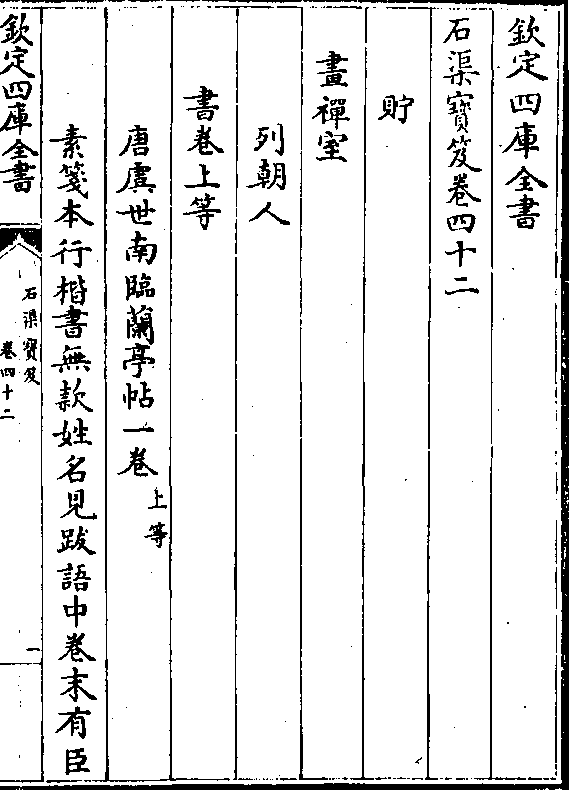 欽定四庫全書
石渠寶笈卷四十二
貯
畫禪室
列朝人
書卷上等
唐虞世南臨蘭亭帖一卷上等
素箋本行楷書無款姓名見跋語中卷末有臣
欽定四庫全書
石渠寶笈
卷四十二
一